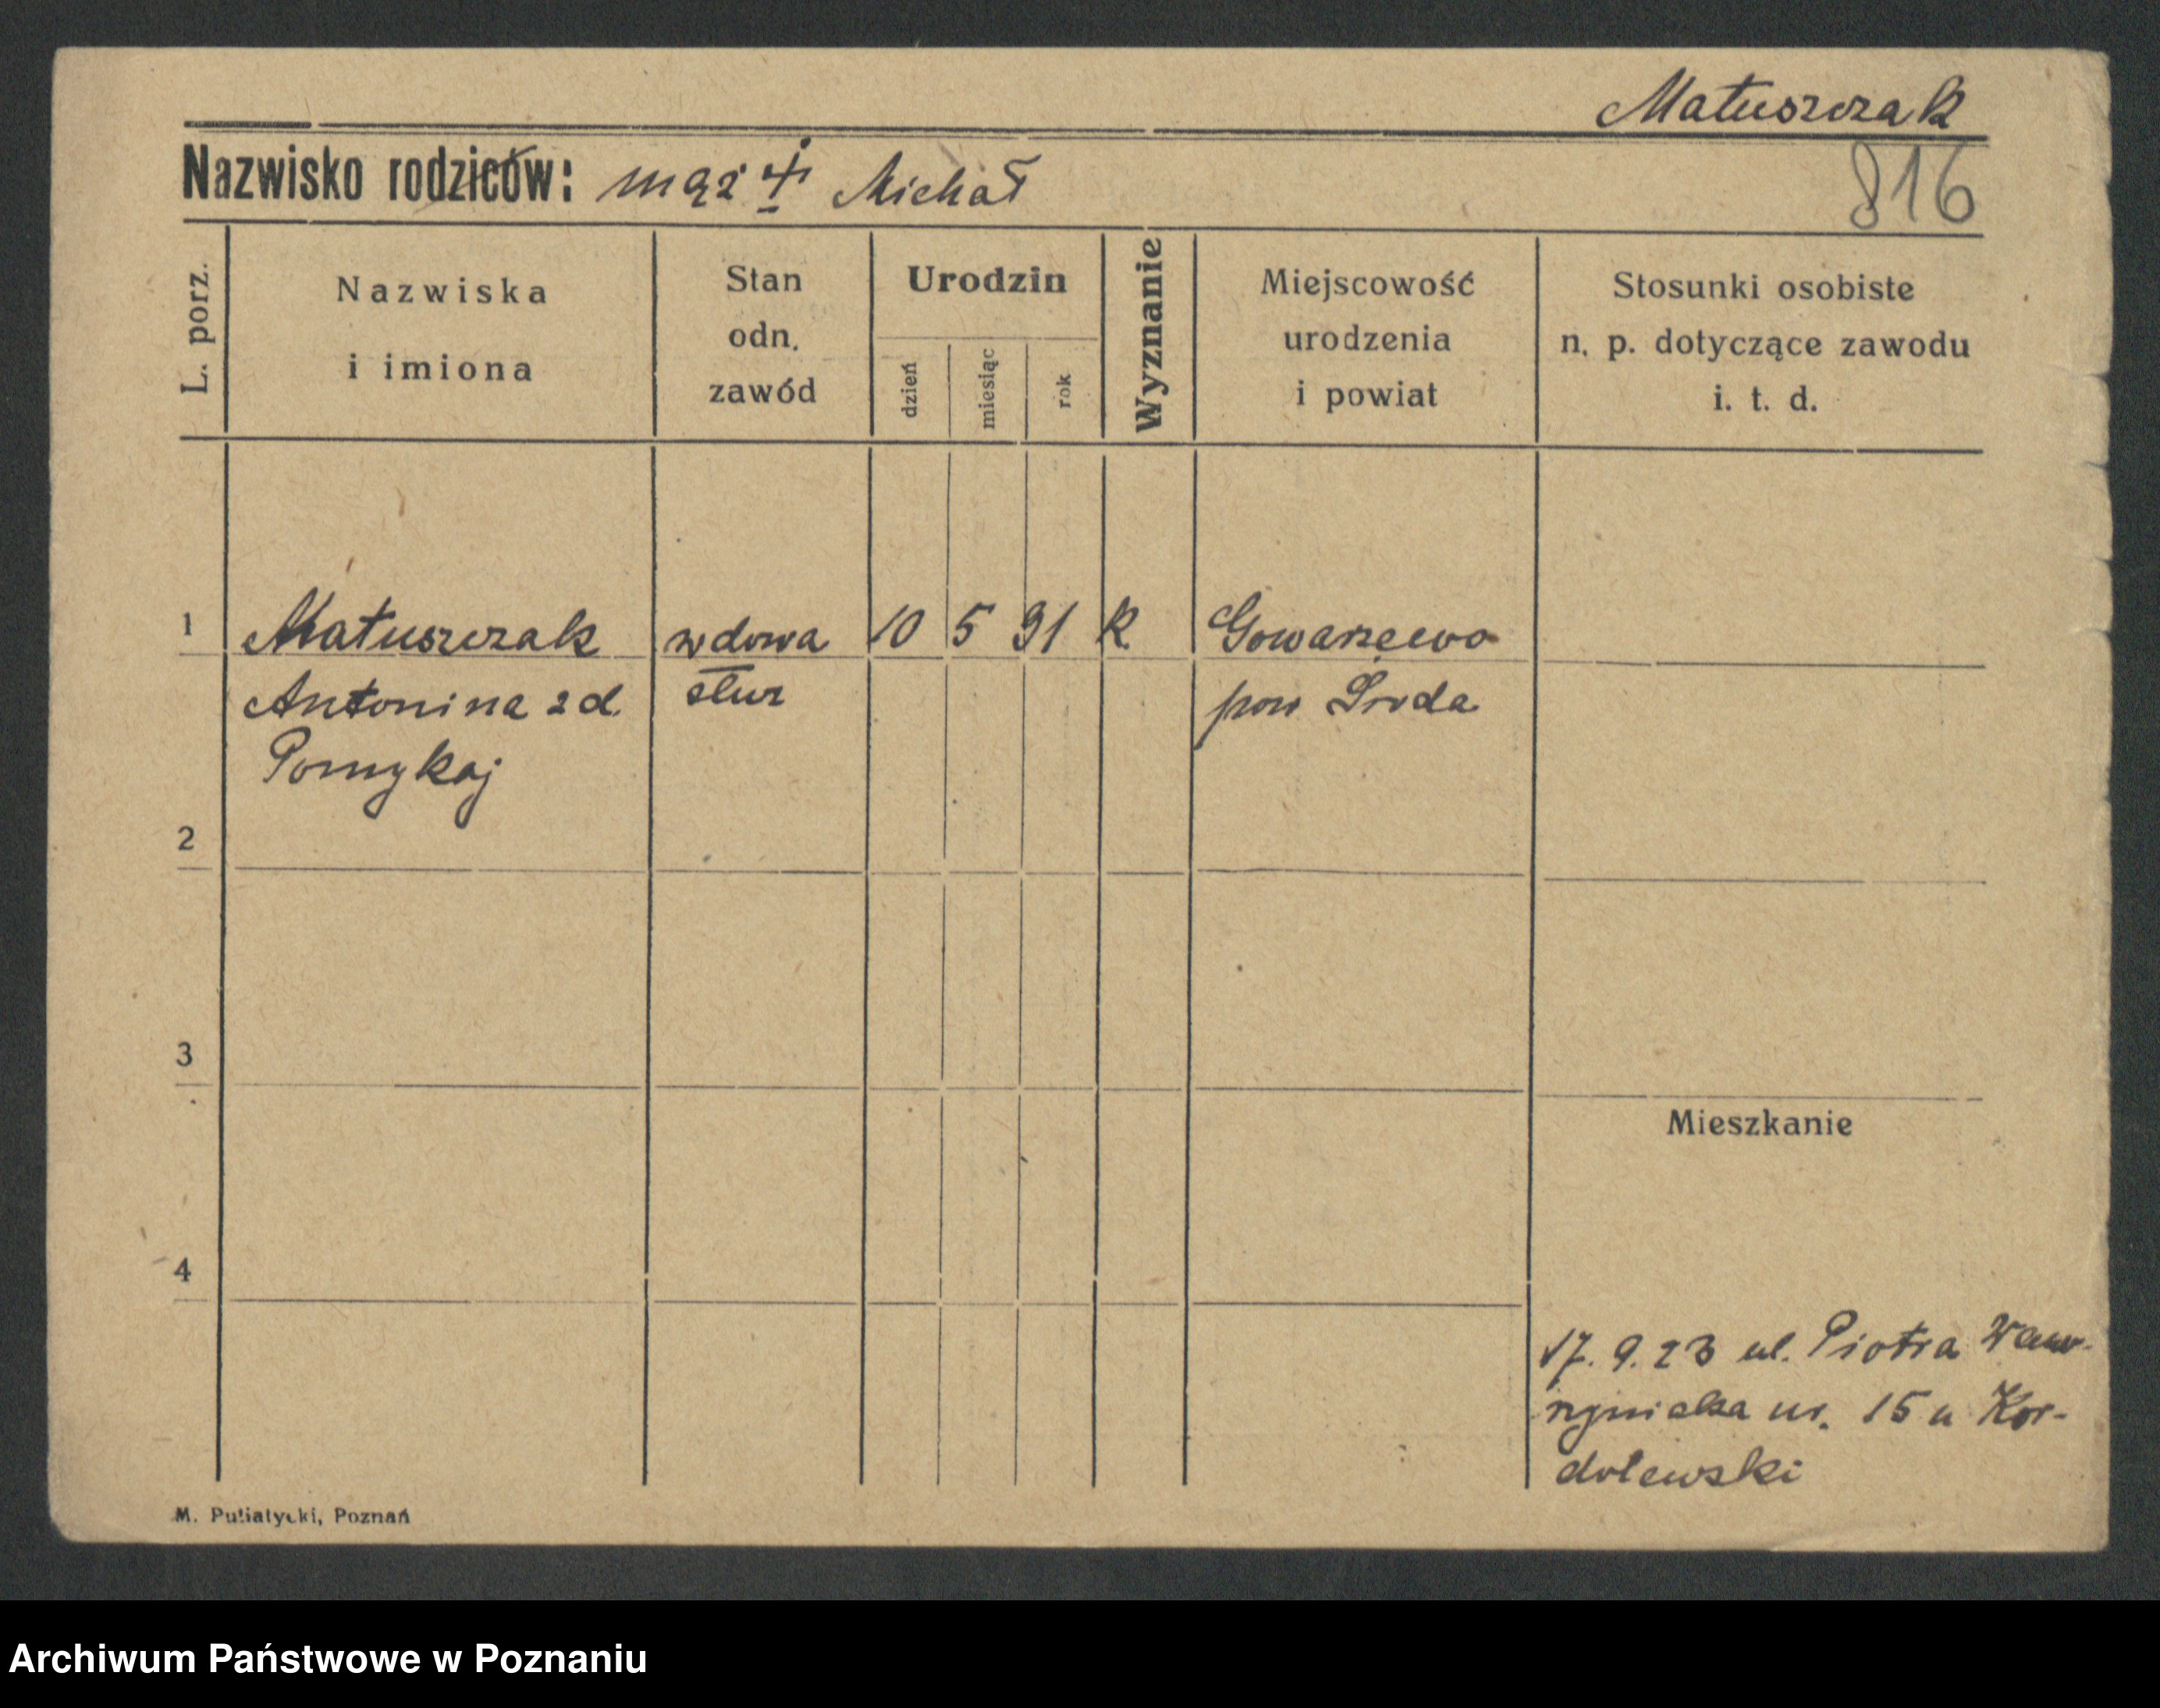 Matuszczak
Nazwisko rodziców: mąż Michał
816
L. porz.
Nazwiska
i imiona
Stan
odn.
zawód
Urodzin
dzień
miesiąc
rok
Wyznanie
Miejscowość
urodzenia
i powiat
Stosunki osobiste
n. p. dotyczące zawodu
i. t. d.
1 Matuszczak wdowa 10 5 91 K Gowarzewo
Antonina z d. służ pow Środa
Pomykaj
2
3
Mieszkanie
4
17. 9. 23 ul. Piotra Waw-
rzyniaka nr. 15 u Kor-
dolewski
M. Putiatycki, Poznań
Archiwum Państwowe w Poznaniu